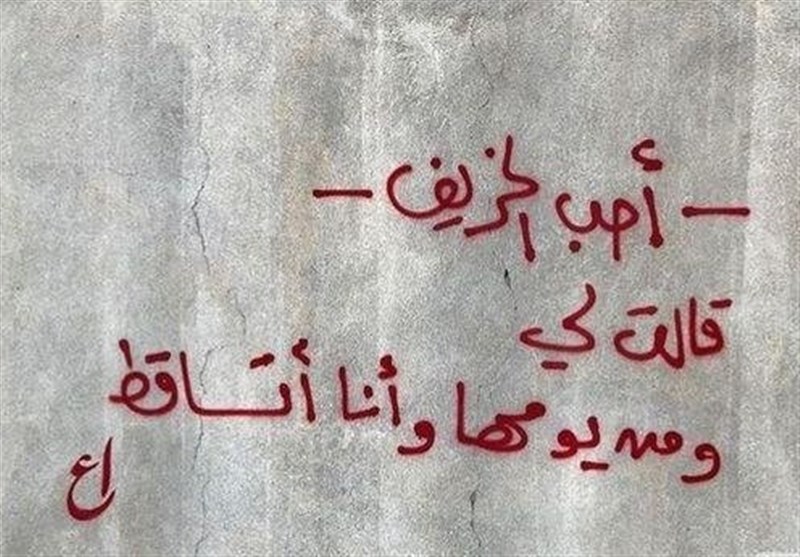 - أحب الخريف -
قالت لي
ومن يومها وأنا أتساقط
اع